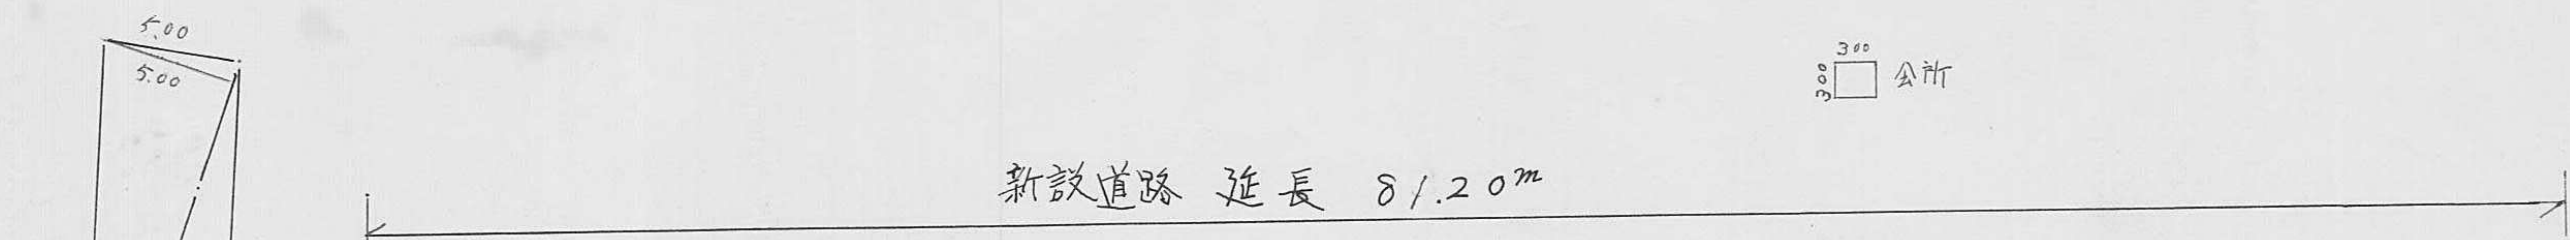 5.00
5.00
300
300
公所
新設道路 延長 81.20m